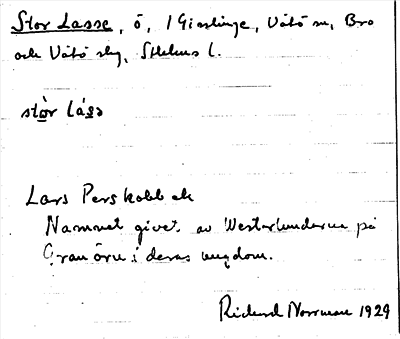 Stor Lasse, ö, i Gisslinge, Vätö sn, Bro
och Vätö slg, Sthlms l.
stòr lás͟ə
Lars Perskobb ek
Namnet givet av Westerlunderna på
Granörn i deras ungdom.
Rickard Norrman 1929